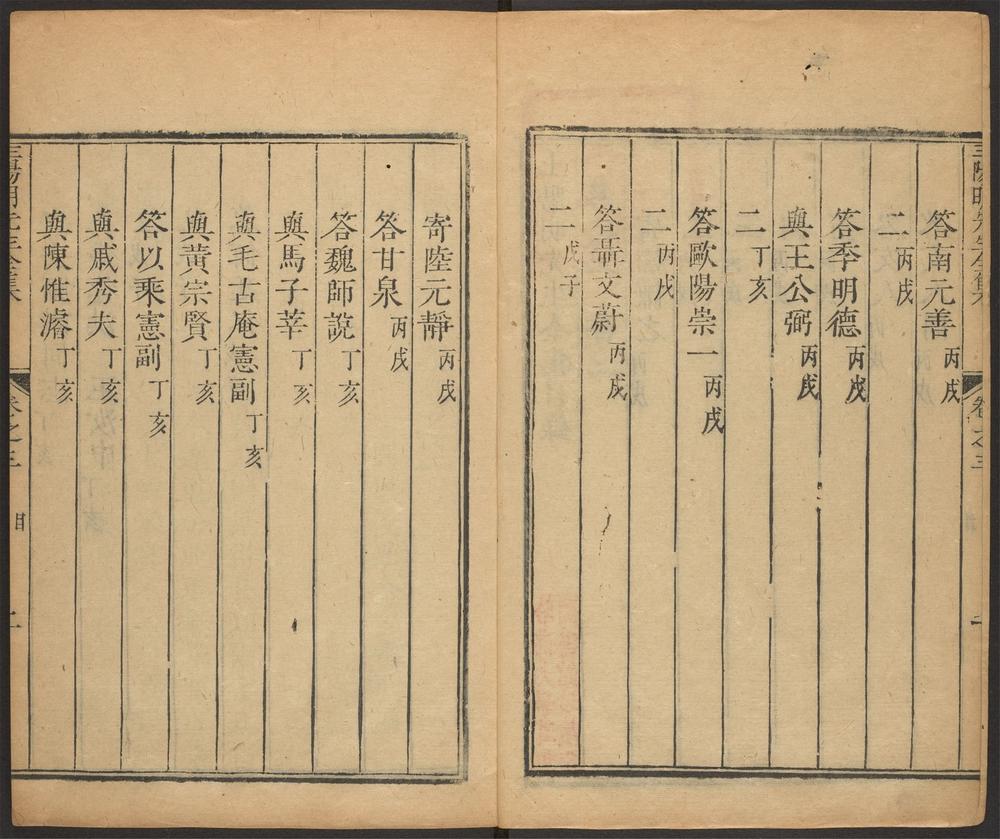 卷之三
答南元善丙戌
二丙戌
答季明德丙戌
與王公弼丙戌
二丁亥
答歐陽崇一丙戌
二丙戌
答聶文蔚丙戌
二戊子
寄陸元靜丙戌
答甘泉丙戌
答魏師說丁亥
與馬子莘丁亥
與毛古庵憲副丁亥
與黃宗賢丁亥
答以乘憲副丁亥
與戚秀夫丁亥
與陳惟濬丁亥